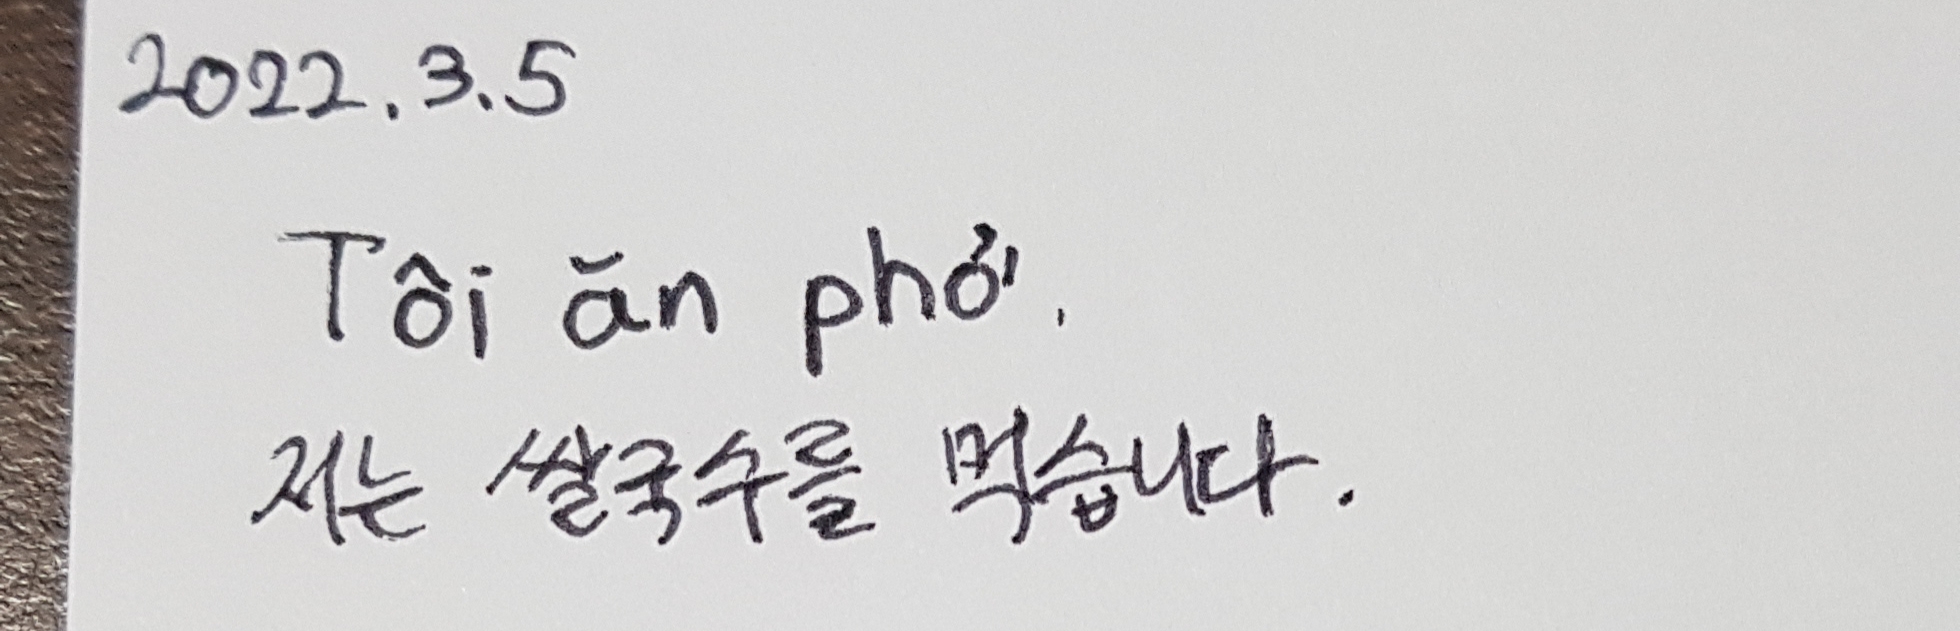 2022.3.5
Tôi ăn phở.
저는 쌀국수를 먹습니다.